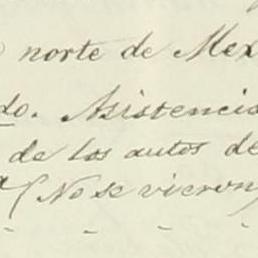 norte de Mex
do. Asistencia
de los autos de
(No se vieron)